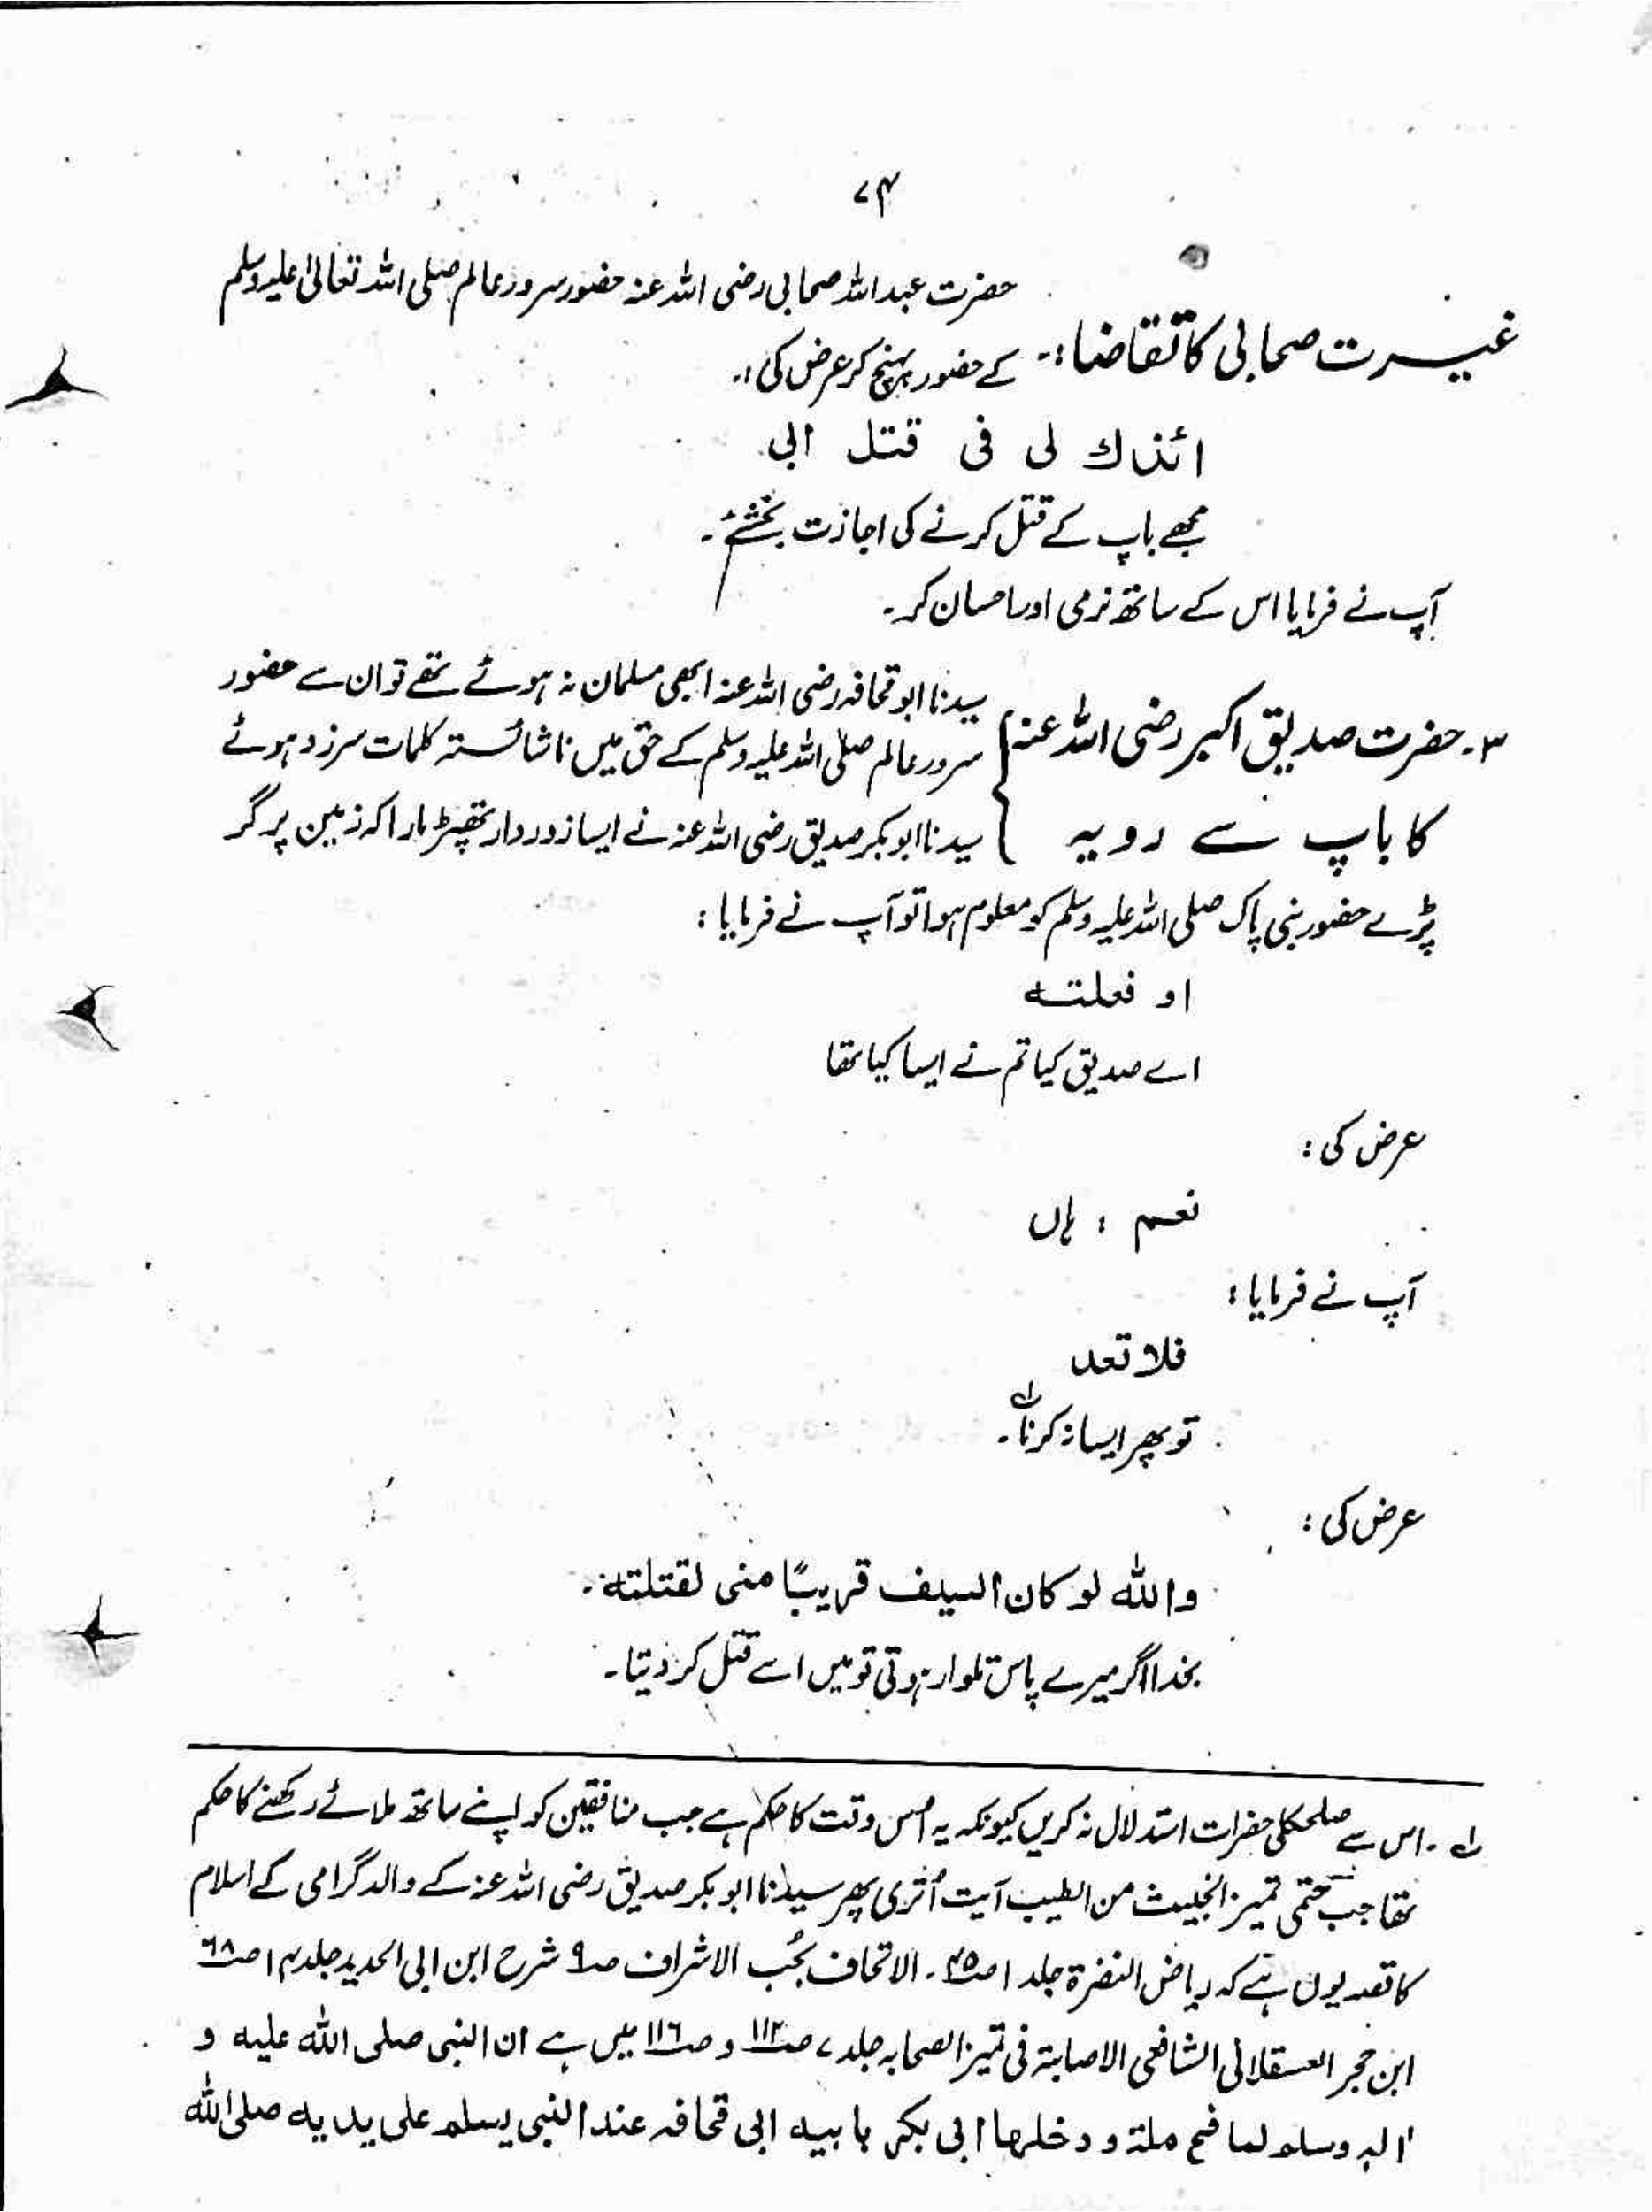 ۷۴
حضرت عبداللہ صحابی رضی اللہ عنہ حضور سرور عالم صلی اللہ تعالیٰ علیہ وسلم
غیرت صحابی کا تقاضا :۔ کے حضور پہنچ کر عرض کی :۔
ائذن لی فی قتل ابی
مجھے باپ کے قتل کرنے کی اجازت بخشئے ۔
آپ نے فرمایا اس کے ساتھ نرمی اور احسان کر ۔
سیدنا ابو قحافہ رضی اللہ عنہ ابھی مسلمان نہ ہوئے تھے تو ان سے حضور
۳۔ حضرت صدیق اکبر رضی اللہ عنہ } سرور عالم صلی اللہ علیہ وسلم کے حق میں ناشائستہ کلمات سرزد ہوئے
کا باپ سے رویہ } سیدنا ابوبکر صدیق رضی اللہ عنہ نے ایسا زور دار تھپڑ مارا کہ زمین پر گر
پڑے حضور نبی پاک صلی اللہ علیہ وسلم کو معلوم ہوا تو آپ نے فرمایا :
او فعلتہ
اے صدیق کیا تم نے ایسا کیا تھا
عرض کی :
نعم : ہاں
آپ نے فرمایا :
فلا تعد
تو پھر ایسا نہ کرنا لہ ۔
عرض کی :
واللہ لو کان السیف قریبًا منی لقتلتہ ۔
بخدا اگر میرے پاس تلوار ہوتی تو میں اسے قتل کر دیتا ۔
لہ ۔ اس سے صلحکلی حضرات استدلال نہ کریں کیونکہ یہ اُس وقت کا حکم ہے جب منافقین کو اپنے ساتھ ملائے رکھنے کا حکم
تھا جب حتی تمیز الخبیث من الطیب آیت اُتری پھر سیدنا ابوبکر صدیق رضی اللہ عنہ کے والد گرامی کے اسلام
کا قصہ یوں ہے کہ ریاض النضرۃ جلد ۱ صہ ۴۵ ۔ الاتحاف بحُب الاشراف صہ ۹ شرح ابن ابی الحدید جلد ۱۴ صہ ۶۸
ابن حجر العسقلانی الشافعی الاصابۃ فی تمیز الصحابہ جلد ۷ صہ ۱۱۲ و صہ ۱۱۶ میں ہے ان النبی صلی اللہ علیہ و
الہ وسلم لما فتح مکۃ و دخلها ابی بکر بابیہ ابی قحافہ عند النبی یسلم علی یدیہ صلی اللہ